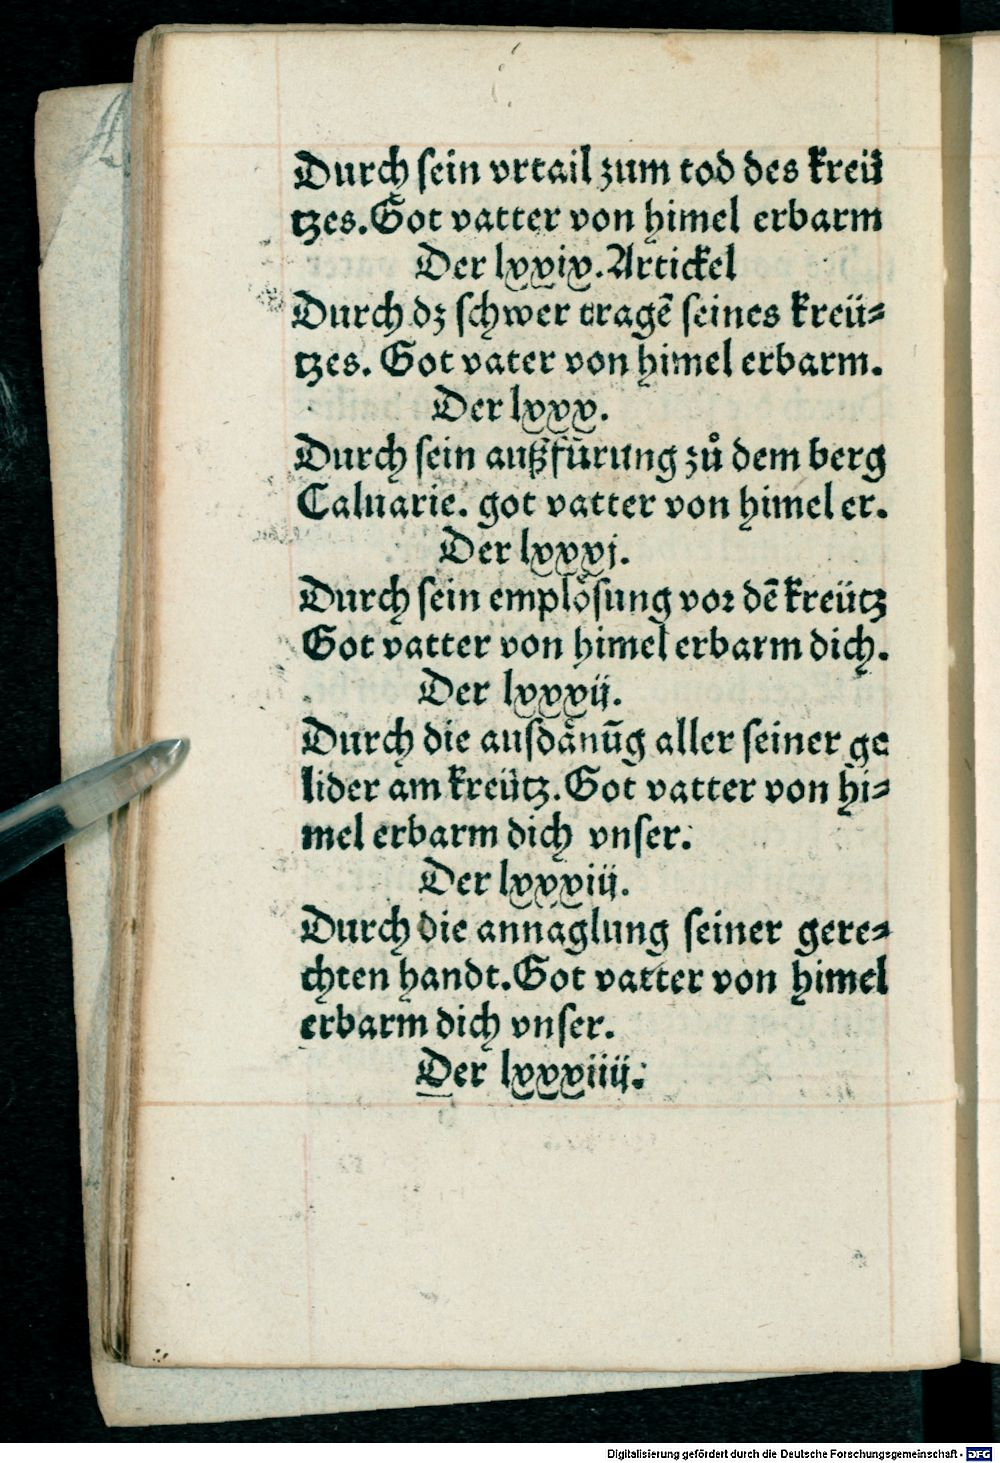 Durch sein vrtail zum tod des kreü
tzes. Got vatter von himel erbarm
Der lxxix. Artickel
Durch dz schwer tragē seines kreü-
tzes. Got vater von himel erbarm.
Der lxxx.
Durch sein außfürung zů dem berg
Caluarie. got vatter von himel er.
Der lxxxj.
Durch sein emplösung vor dē kreütz
Got vatter von himel erbarm dich.
Der lxxxij.
Durch die ausdånūg aller seiner ge
lider am kreütz. Got vatter von hi-
mel erbarm dich vnser.
Der lxxxiij.
Durch die annaglung seiner gere-
chten handt. Got vatter von himel
erbarm dich vnser.
Der lxxxiiij.
Digitalisierung gefördert durch die Deutsche Forschungsgemeinschaft - DFG